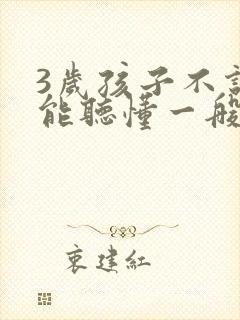 3歲孩子不
能聽懂一般
衷建紅